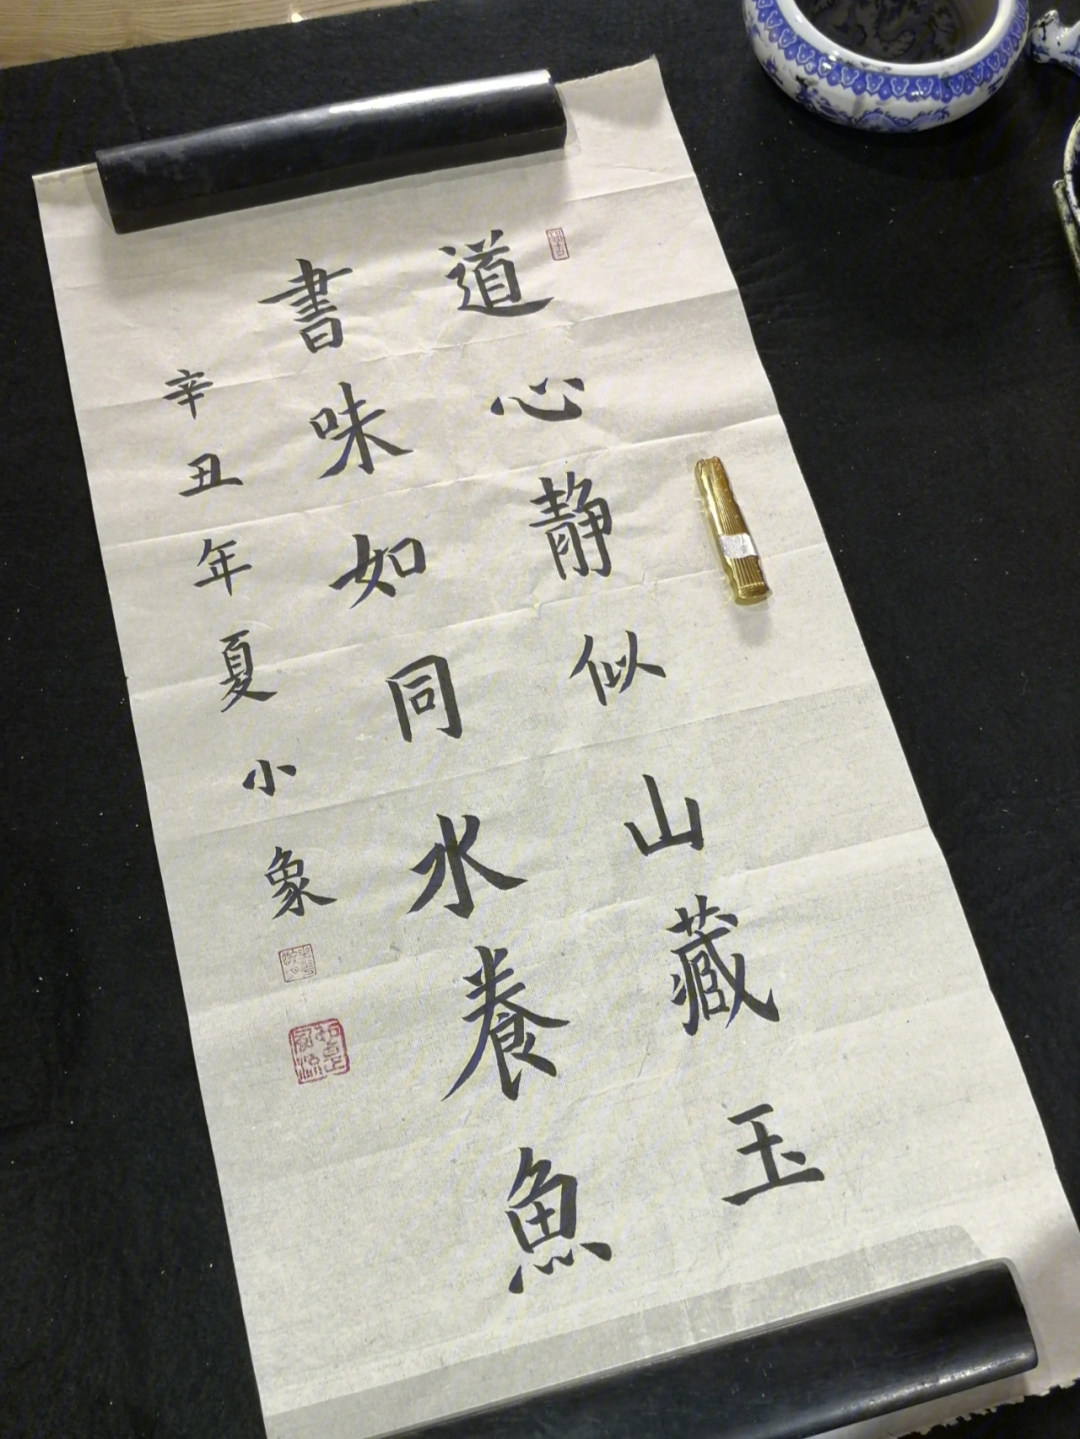 道心静似山藏玉
書味如同水養魚
辛丑年夏小象